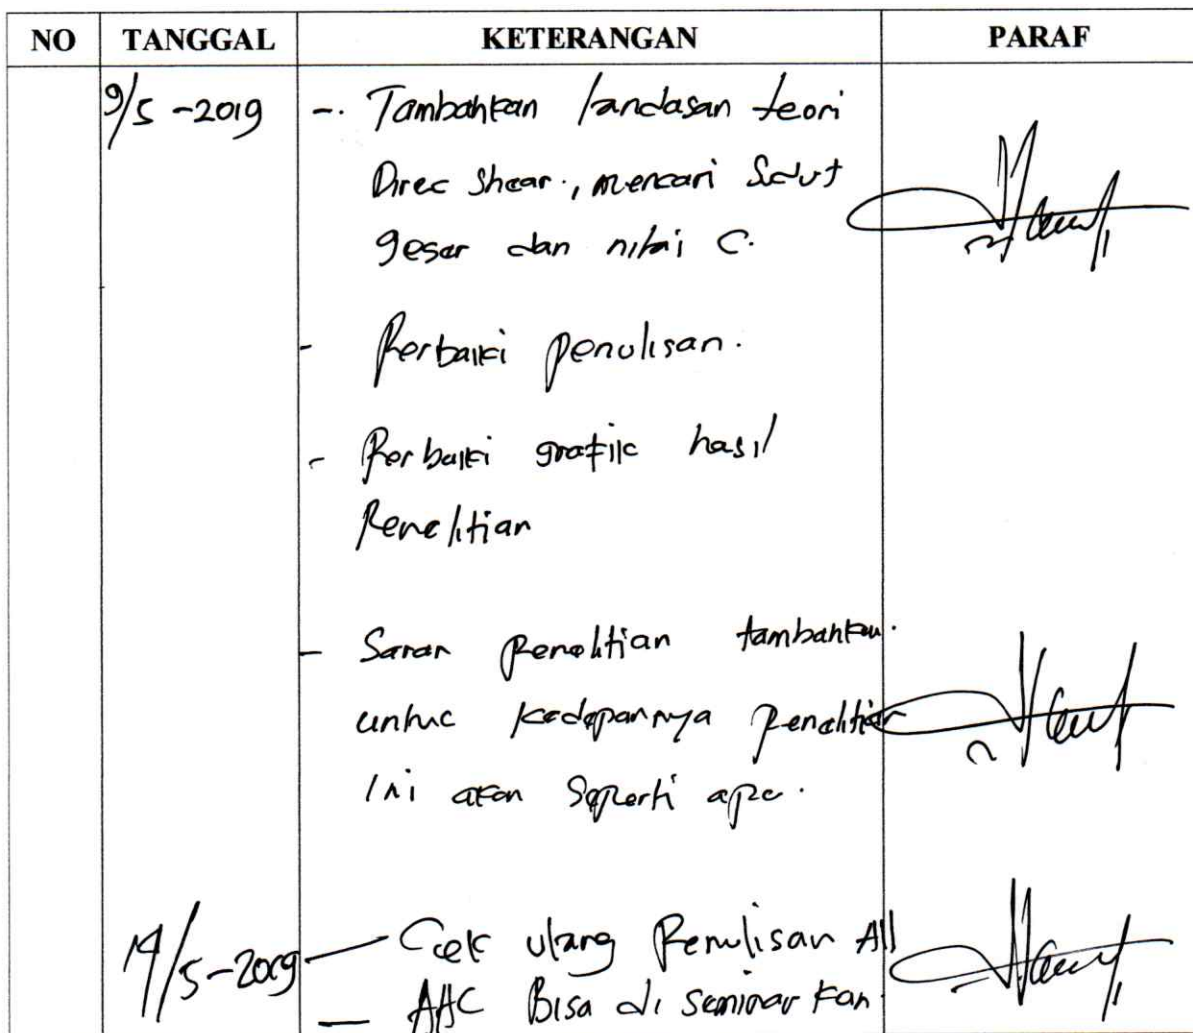 NO TANGGAL KETERANGAN PARAF
9/5-2019 -. Tambahkan landasan teori
Direc shear., mencari Sudut
geser dan nilai C.
- Perbaiki penulisan.
- Perbaiki grafik hasil
Penelitian
- Saran penelitian tambahkan.
untuk kedepannya penelitian
ini akan seperti apa.
14/5-2019 — Cek ulang Penulisan All
— AAC Bisa di seminar kan.